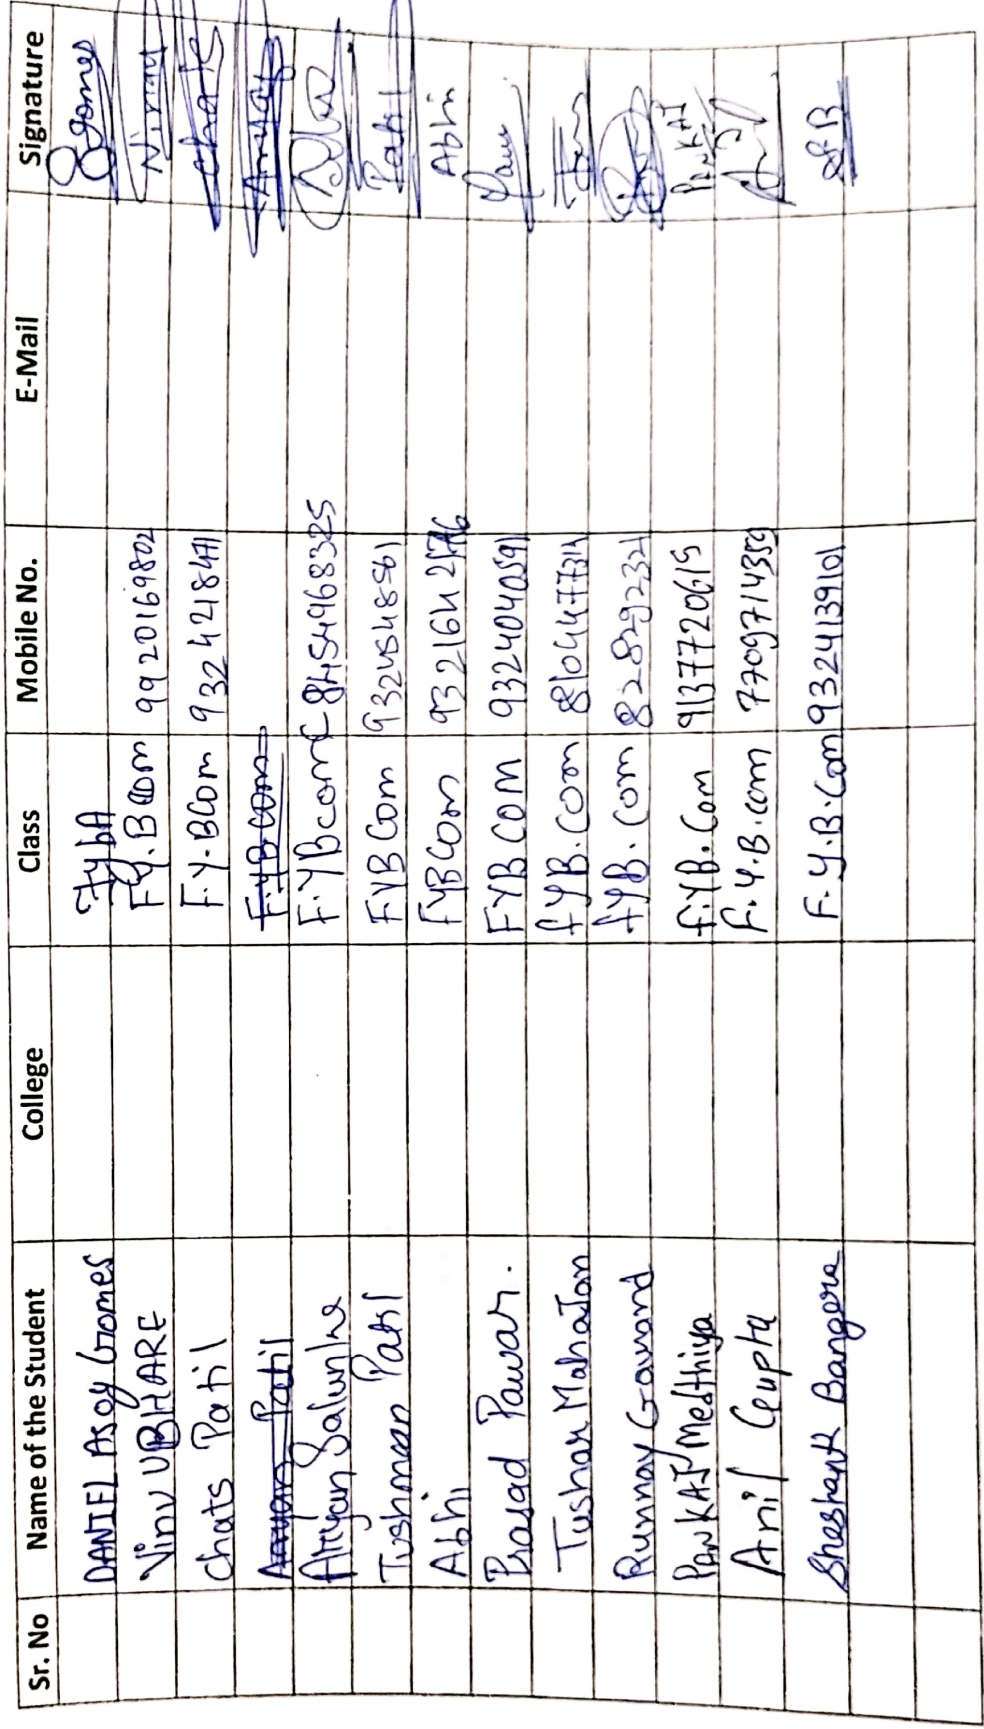 Sr. No Name of the Student College Class Mobile No. E-Mail Signature
DANIEL Asoy Gomes FyBA Gomes
Vinv UBHARE F.y.BCom 9920169802
Chats Patil F.y.BCom 9324218471
Aryan Patil F.Y.B.com
Aryan Salunke F.YBcom 8454968325
Tushman Patil FYBCom 9324548561 Patil
Abhi FYBCom Abhi
Prasad Pawar. FYBCOM 9324040591
Tushar Mahajan fYB.Com
Runnay Gawand fYB.Com 8282292321
PANKAJ Medthiya f.YB.Com 9137720615 PANKAJ
Anil Gupta F.Y.B.com 7709714359
Shashank Bangera F.Y.B.Com 9324139101 SPB